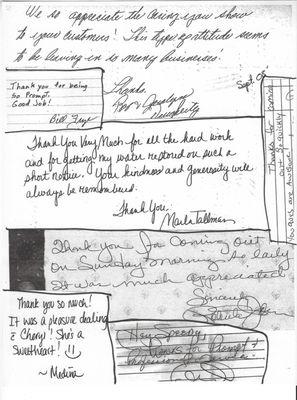 We so appreciate the caring you show
to your customers! This type gratitude seems
to be leaving in so many businesses!
Thanks.
Sept. 08
Thank you for being
So Prompt.
Good Job!
Bill
Thank You Very Much for all the hard work
and for getting my water restored on such a
short notice. Your kindness and generosity will
always be remembered.
Thank You,
Marla Tallman
Thanks for coming
out so quickly!
You guys are Awesome!
Thank you for coming out
on Sunday morning so early
It was much appreciated
Sincerely
Thank you so much!
It was a pleasure dealing
c̄ Cheryl! She's a
Sweetheart!
~ Medina
Hey Speedy,
Thanks for Prompt &
Professional Service.